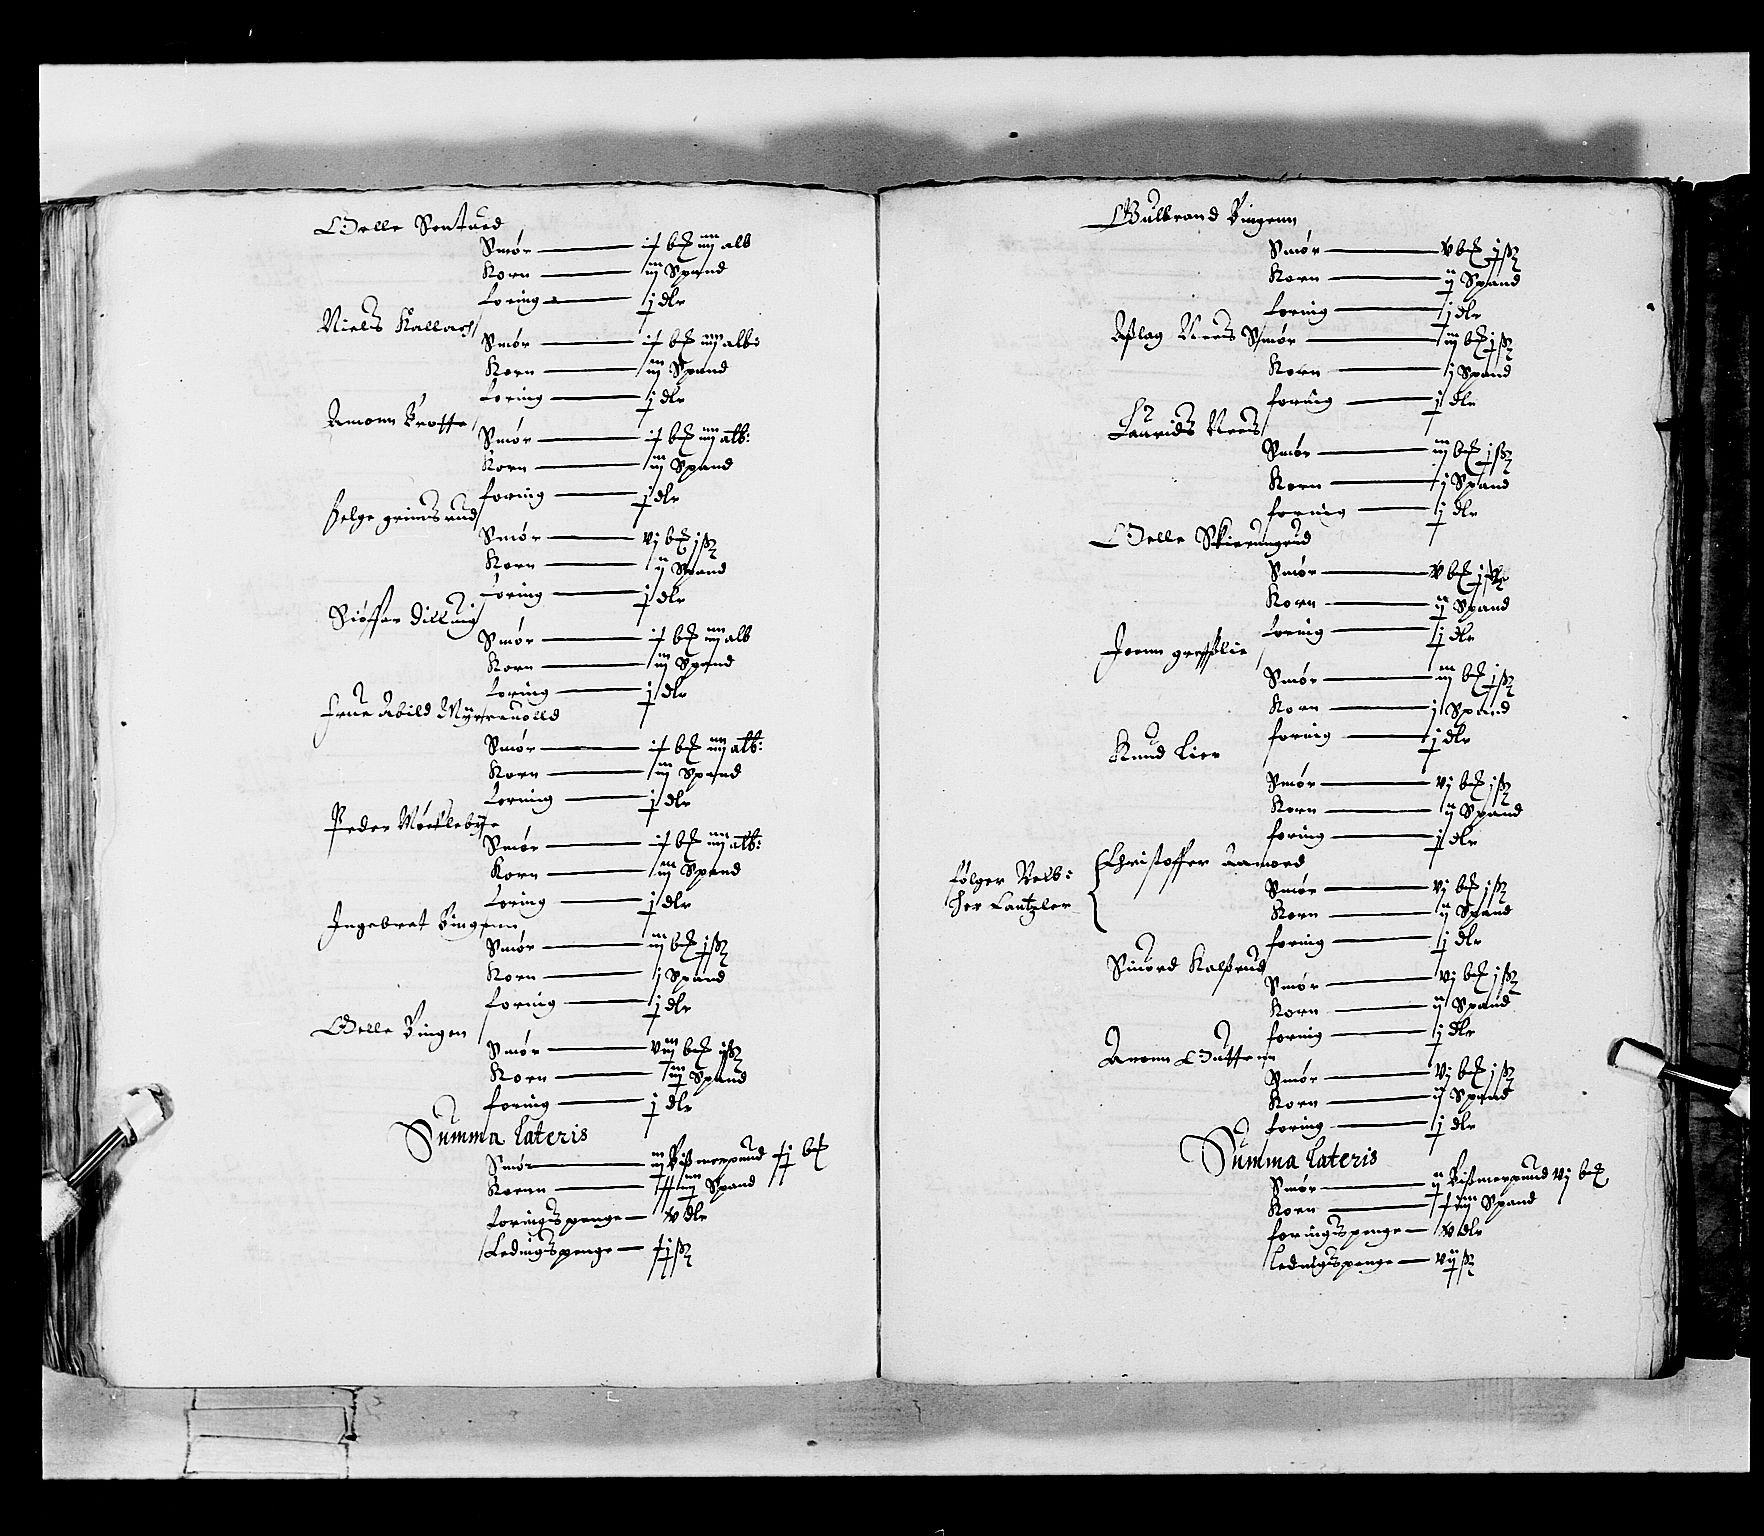 Oelle Sontued
Smør — ix b℔ iiij alb
Korn — iij Spand
foring — j dlr
Niels Kallach
Smør — ix b℔ iiij alb:
Korn — iij Spand
foring — j dlr
Amonn Protte
Smør — ix b℔ iiij alb:
Korn — iij Spand
foring — j dlr
Helge grimsrud
Smør — vj b℔ j ß
Korn — ij Spand
foring — j dlr
Siøffar Dilling
Smør — ix b℔ iiij alb
Korn — iij Spand
foring — j dlr
frue Abild Myrreuolld
Smør — ix b℔ iiij alb:
Korn — iij Spand
foring — j dlr
Peder Møcklebye
Smør — ix b℔ iiij alb:
Korn — iij Spand
foring — j dlr
Ingebret Vingenn
Smør — iij b℔ j ß
Korn — j Spand
foring — j dlr
Oelle Vingen
Smør — viij b℔ ij ß
Korn — iij Spand
foring — j dlr
Summa Lateris
Smør — iij Bißmerpund xj b℔
Kornn — Spand
foringspenge — ix dlr
Ledingspenge — xj ß
Gulbrand Vingenn
Smør — v b℔ j ß
Korn — ij Spand
foring — j dlr
Aßlag Nees Smør — iij b℔ j ß
Korn — j Spand
foring — j dlr
Hr
Laurids Nees
Smør — iij b℔ j ß
Korn — j Spand
foring — j dlr
Oelle Skierungrud
Smør — v b℔ j ß
Korn — ij Spand
foring — j dlr
Joenn greßlie
Smør — iij b℔ j ß
Korn — j Spand
foring — j dlr
Knud Lier
Smør — vj b℔ j ß
Korn — ij Spand
foring — j dlr
følger Velb: Christoffer Aamoed
Her Cantzler
Smør — vj b℔ j ß
Korn — ij Spand
foring — j dlr
Siuord Kalßrud
Smør — vj b℔ j ß
Korn — ij Spand
foring — j dlr
Amonn Guttenn
Smør — vj b℔ j ß
Korn — ij Spand
foring — j dlr
Summa Lateris
Smør — ij Bißmerpund vj b℔
Korn — Spand
foringspenge — ix dlr
Ledingspenge — vij ß